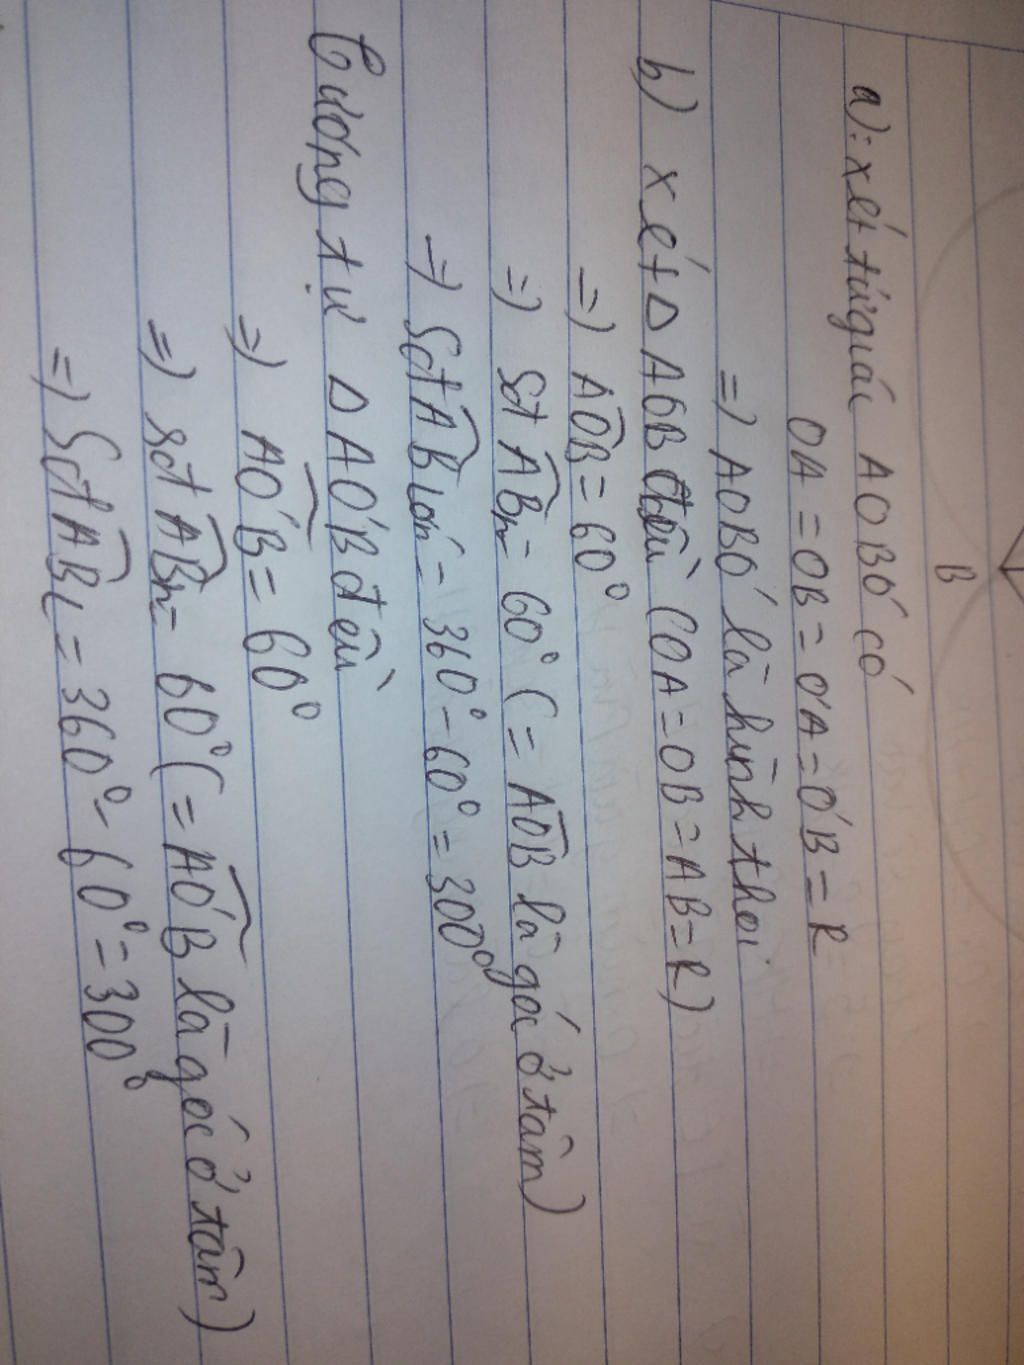 B
a): xét tứ giác AOBO' có
OA = OB = O'A = O'B = R
=> AOBO' là hình thoi
b) xét Δ AOB đều (OA = OB = AB = R)
=> AOB = 60°
=> Sđ ABn = 60° (= AOB là góc ở tâm)
=> Sđ AB lớn = 360° - 60° = 300°
Tương tự Δ AO'B đều
=> AO'B = 60°
=> sđ ABn = 60° (= AO'B là góc ở tâm)
=> Sđ ABL = 360° - 60° = 300°